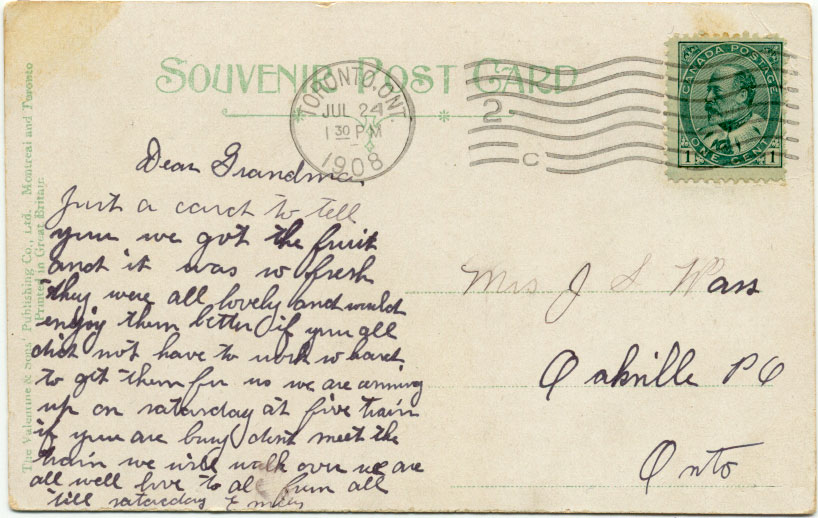 SOUVENIR POST CARD
TORONTO, ONT.
JUL 24
1 30 PM
1908
2
C
CANADA POSTAGE
1 ONE CENT 1
The Valentine & Sons' Publishing Co., Ltd. Montreal and Toronto
Printed in Great Britain
Dear Grandma
Just a card to tell
you we got the fruit
and it was so fresh
they were all lovely and would
enjoy them better if you all
did not have to work so hard
to get them for us we are coming
up on saturday at five train
if you are busy dont meet the
train we will walk over we are
all well love to all from all
till saturday
Mrs J S Wass
Oakville PO
Onto